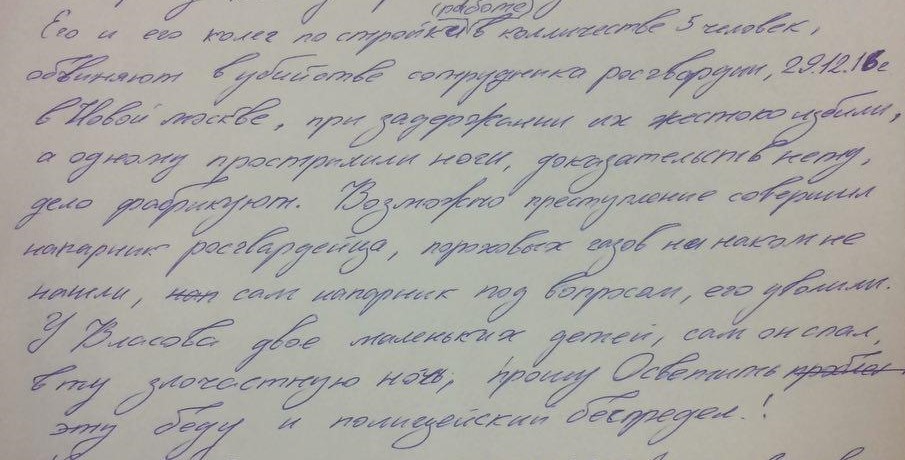 (работе)
Его и его колег по стройке в колличестве 5 человек,
обвиняют в убийстве сотрудника росгвардии, 29.12.16г
в Новой москве, при задержании их жестоко избили,
а одному прострилили ноги, доказательств нету,
дело фабрикуют. Возможно преступление совершил
напарник росгвардейца, пороховых газов на наком не
нашли, нап сам напарник под вопросам, его уволили.
У Власова двое маленьких детей, сам он спал,
в ту злочастную ночь, прошу Осветить
эту беду и полицейский беспредел.!